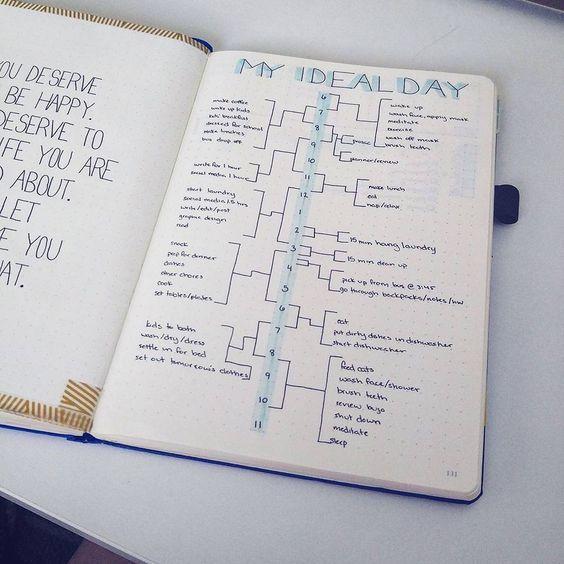 YOU DESERVE
BE HAPPY.
DESERVE TO
LIFE YOU ARE
ABOUT.
LET
YOU
MY IDEAL DAY
make coffee
wake up kids
kids' breakfast
dressed for school
make lunches
bus drop off
write for 1 hour
social media 1 hour
start laundry
social media 1.5 hrs
write/edit/post
graphic design
read
snack
prep for dinner
dishes
other chores
cook
set tables/plates
kids to bath
wash/dry/dress
settle in for bed
set out tomorrow's clothes
6
7
8
9
10
11
12
1
2
3
4
5
6
7
8
9
10
11
wake up
wash face, apply mask
meditate
exercise
wash off mask
brush teeth
planner/review
make lunch
eat
nap/relax
15 min hang laundry
15 min clean up
pick up from bus @ 3:45
go through backpacks/notes/hw
eat
put dirty dishes in dishwasher
start dishwasher
feed cats
wash face/shower
brush teeth
review bujo
shut down
meditate
sleep
131